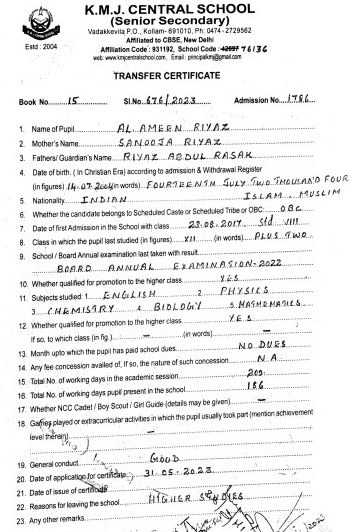 K.M.J. CENTRAL SCHOOL
(Senior Secondary)
Vadakkevila P.O., Kollam- 691010, Ph: 0474 - 2729562
Affiliated to CBSE, New Delhi
Estd : 2004
Affiliation Code : 931192, School Code : 42697 76136
web: www.kmjcentralschool.com, Email : principalkmj@gmail.com
TRANSFER CERTIFICATE
Book No. 15 Sl.No. 676/2023 Admission No. 1786
1. Name of Pupil AL AMEEN RIYAZ
2. Mother's Name SANOOJA RIYAZ
3. Fathers/ Guardian's Name RIYAZ ABDUL RASAK
4. Date of birth. ( In Christian Era) according to admission & Withdrawal Register
(in figures) 14.07.2004 (in words) FOURTEENTH JULY TWO THOUSAND FOUR
5. Nationality INDIAN ISLAM, MUSLIM
6. Whether the candidate belongs to Scheduled Caste or Scheduled Tribe or OBC: OBC
7. Date of first Admission in the School with class 23.08.2017, Std VIII
8. Class in which the pupil last studied (in figures) XII (in words) PLUS TWO
9. School / Board Annual examination last taken with result
BOARD ANNUAL EXAMINATION-2022
10. Whether qualified for promotion to the higher class YES
11. Subjects studied: 1. ENGLISH 2. PHYSICS
3. CHEMISTRY 4. BIOLOGY 5. MATHEMATICS
12. Whether qualified for promotion to the higher class YES
If so, to which class (in fig.) — (in words) —
13. Month upto which the pupil has paid school dues NO DUES
14. Any fee concession availed of, If so, the nature of such concession N.A
15. Total No. of working days in the academic session 200
16. Total No. of working days pupil present in the school 186
17. Whether NCC Cadet / Boy Scout / Girl Guide (details may be given) —
18 Games played or extracurricular activities in which pupil usually took part (mention achievement
level therein) —
19. General conduct GOOD
20. Date of application for certificate 31-05-2023
21. Date of issue of certificate
22. Reasons for leaving the school HIGHER STUDIES
23. Any other remarks